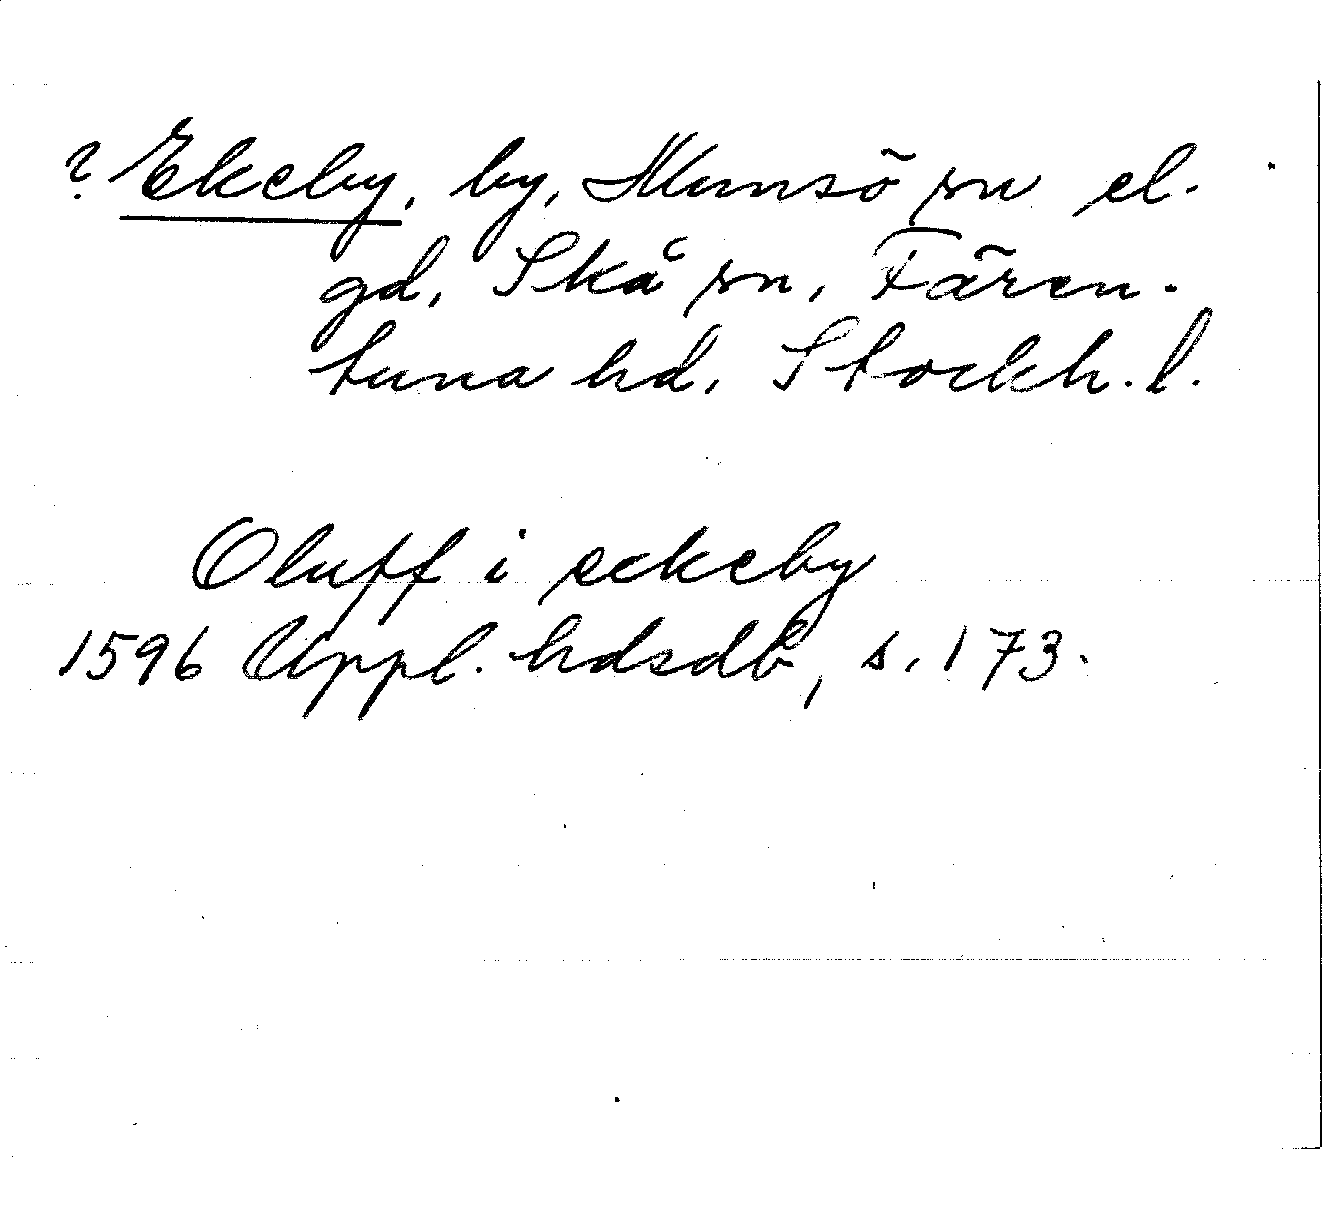 ? Ekeby, by, Munsö sn el.
gd, Skå sn, Fären-
tuna hd, Stockh. l.
Oluff i eckeby
1596 Uppl. hdsdb, s. 173.